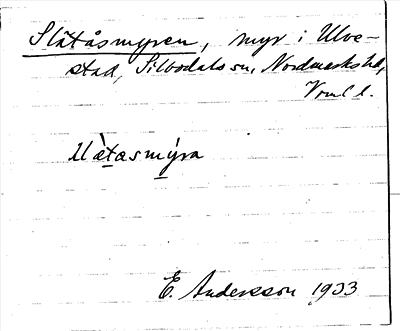 Slätåsmyren, myr i Ulve-
stad, Silbodals sn, Nordmarks hd,
Vrml l.
E. Andersson 1933